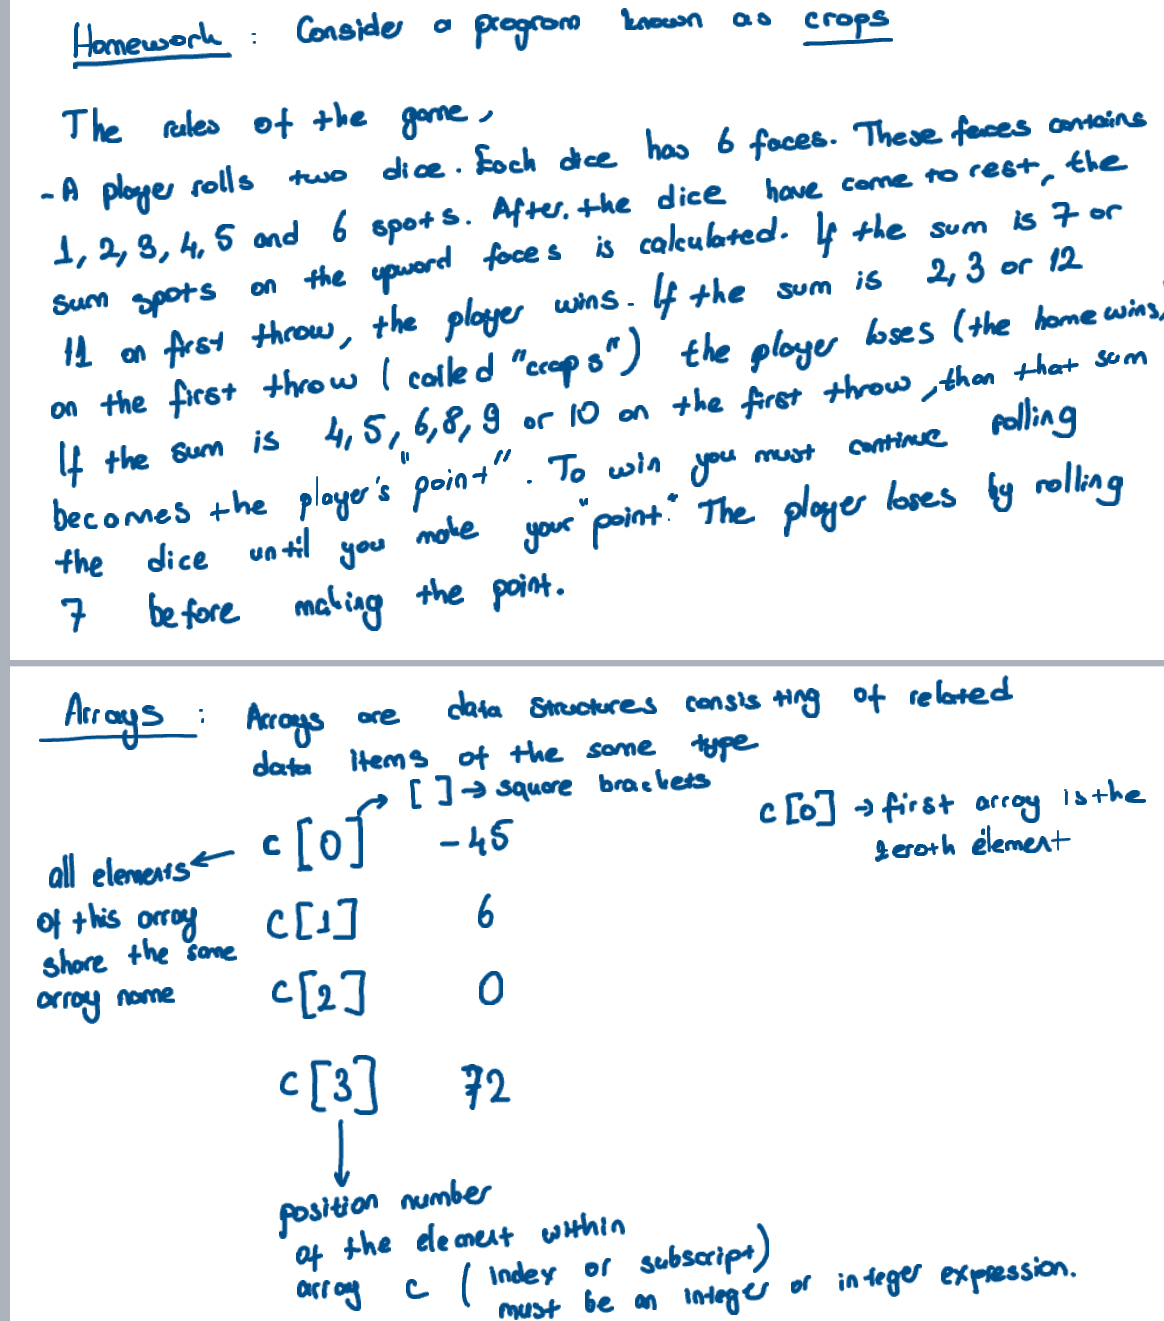 Homework : Consider a program known as craps
The rules of the game,
- A player rolls two dice. Each dice has 6 faces. These faces contains
1, 2, 3, 4, 5 and 6 spots. After, the dice have come to rest, the
sum spots on the upward faces is calculated. If the sum is 7 or
11 on first throw, the player wins. If the sum is 2, 3 or 12
on the first throw (called "craps") the player loses (the home wins)
If the sum is 4, 5, 6, 8, 9 or 10 on the first throw, than that sum
becomes the player's "point". To win you must continue rolling
the dice until you make your "point." The player loses by rolling
7 before making the point.
Arrays : Arrays are data structures consisting of related
data items of the same type
[ ] → square brackets
c [0] -45
c [0] → first array is the
zeroth element
all elements
of this array
share the same
array name
c [1] 6
c [2] 0
c [3] 72
position number
of the element within
array c (index or subscript)
must be an integer or integer expression.